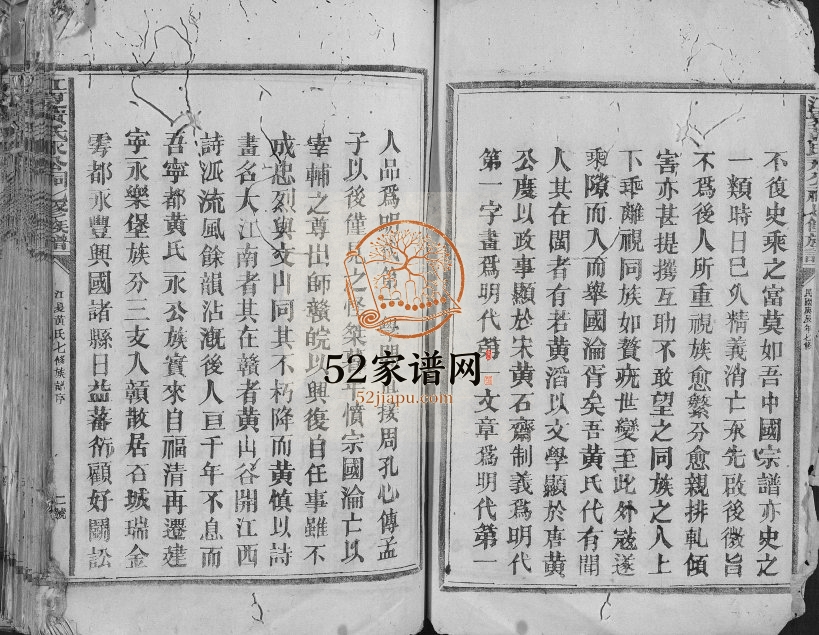 不復史乘之富莫如吾中國宗譜亦史之
一類時日已久精義消亡承先啟後微旨
不爲後人所重視族愈繁分愈親排軋傾
害亦甚提攜互助不敢望之同族之人上
下乖離視同族如贅疣世變至此外寇遂
乘隙而入而舉國淪胥矣吾黃氏代有聞
人其在閩者有若黃滔以文學顯於唐黃
公度以政事顯於宋黃石齋制義爲明代
第一字畫爲明代第一文章爲明代第一
民國庚辰年七修
人品爲明代第一學問直接周孔心傳孟
子以後僅見之怪傑
憤宗國淪亡以
宰輔之尊出師贛皖以興復自任事雖不
成忠烈與文山同其不朽降而黃慎以詩
畫名大江南者其在贛者黃山谷開江西
詩派流風餘韻沾漑後人亘千年不息而
吾寧都黃氏永公族實來自福清再遷建
寧永樂堡族分三支入贛散居石城瑞金
雩都永豐興國諸縣日益蕃衍顧好鬭訟
江夏黃氏七修族譜序
二號
52家谱网
52jiapu.com